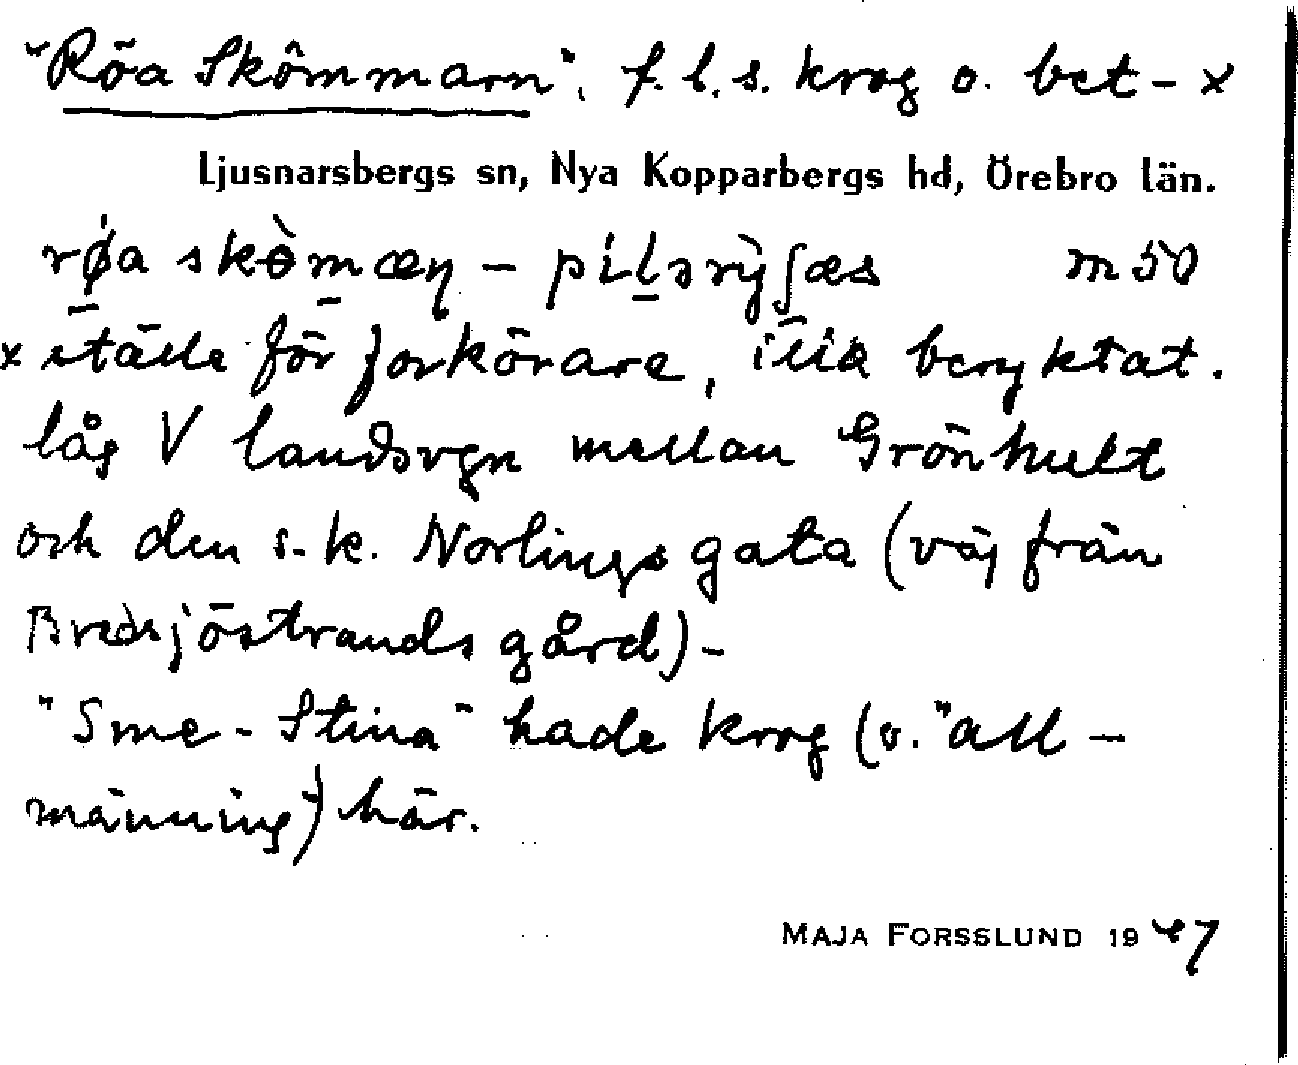 "Röa Skômmarn", f. l. s. krog o. bet- x
Ljusnarsbergs sn, Nya Kopparbergs hd, Örebro län.
rø̀a skòmæɳ – pilərỳʃæs m50
x ställe för forkörare, illa beryktat.
låg V landsvgn mellan Grönhult
och den s.k. Norlings gata (väj från
Bredsjöstrands gård) –
"Sme-Stina" hade krog (o. "all-
männing") här.
MAJA FORSSLUND 1947